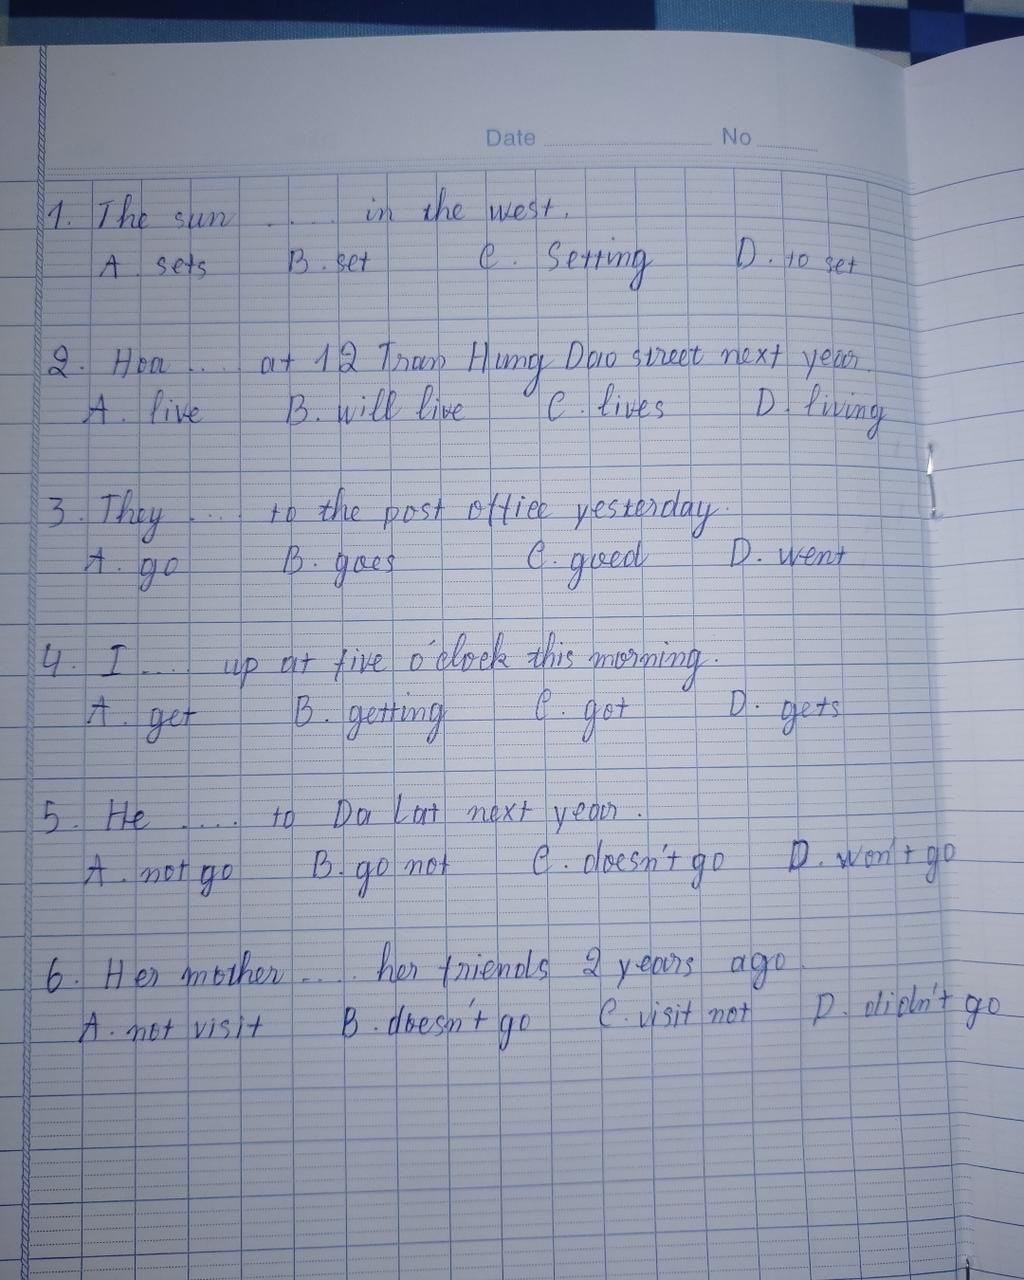 Date No
1. The sun ..... in the west.
A. sets B. set C. Setting D. to set
2. Hoa .... at 12 Tran Hung Dao street next year.
A. live B. will live C. lives D. living
3. They .... to the post office yesterday.
A. go B. goes C. goed D. went
4. I .... up at five o'clock this morning.
A. get B. getting C. got D. gets
5. He .... to Da Lat next year.
A. not go B. go not C. doesn't go D. won't go
6. Her mother .... her friends 2 years ago.
A. not visit B. doesn't go C. visit not D. didn't go